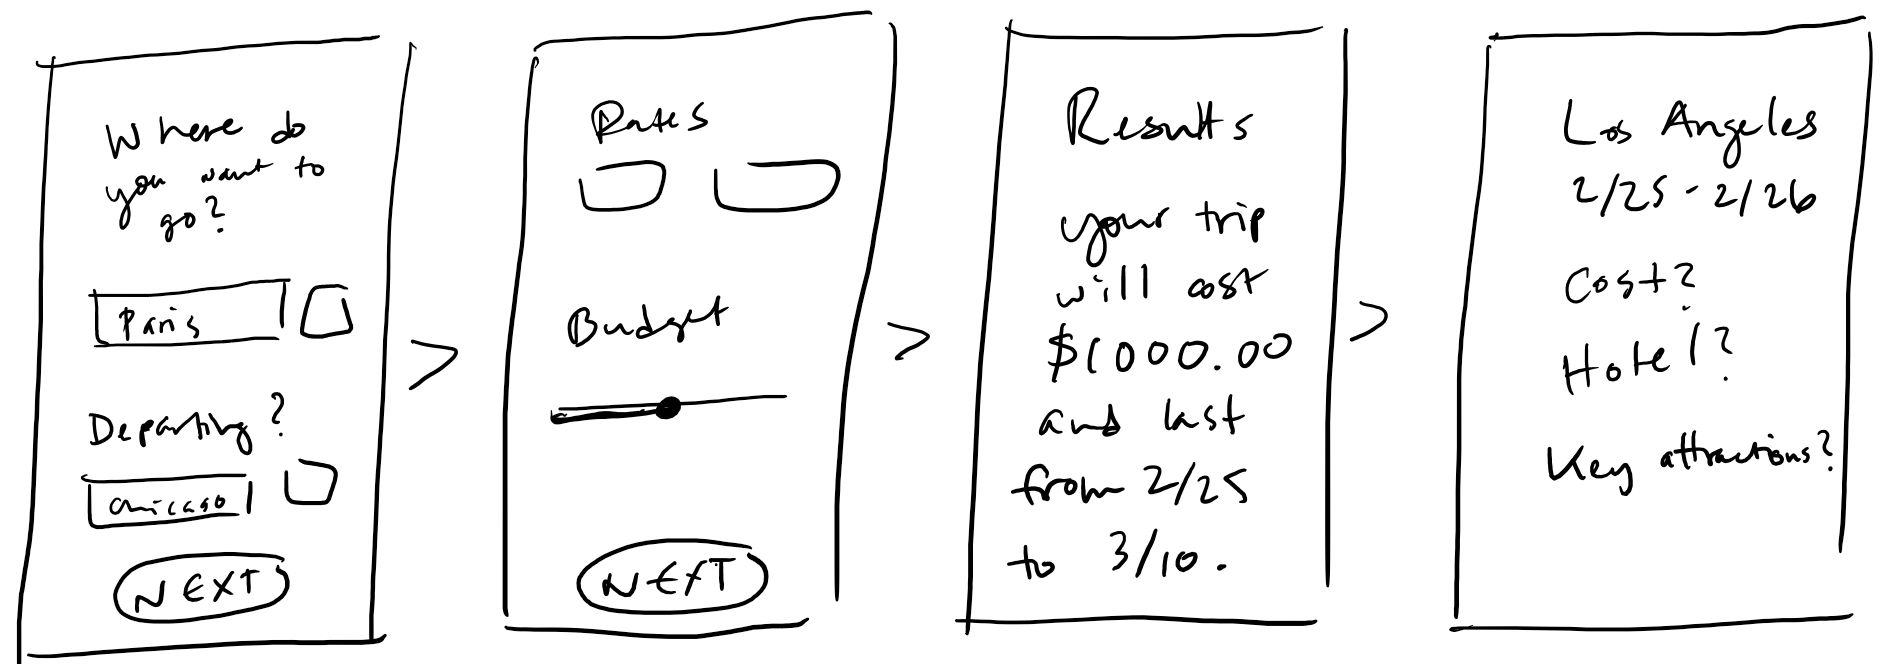 Where do
you want to
go?
Paris
Departing?
Chicago
NEXT
>
Dates
Budget
NEXT
>
Results
your trip
will cost
$1000.00
and last
from 2/25
to 3/10.
>
Los Angeles
2/25 - 2/26
Cost?
Hotel?
Key attractions?